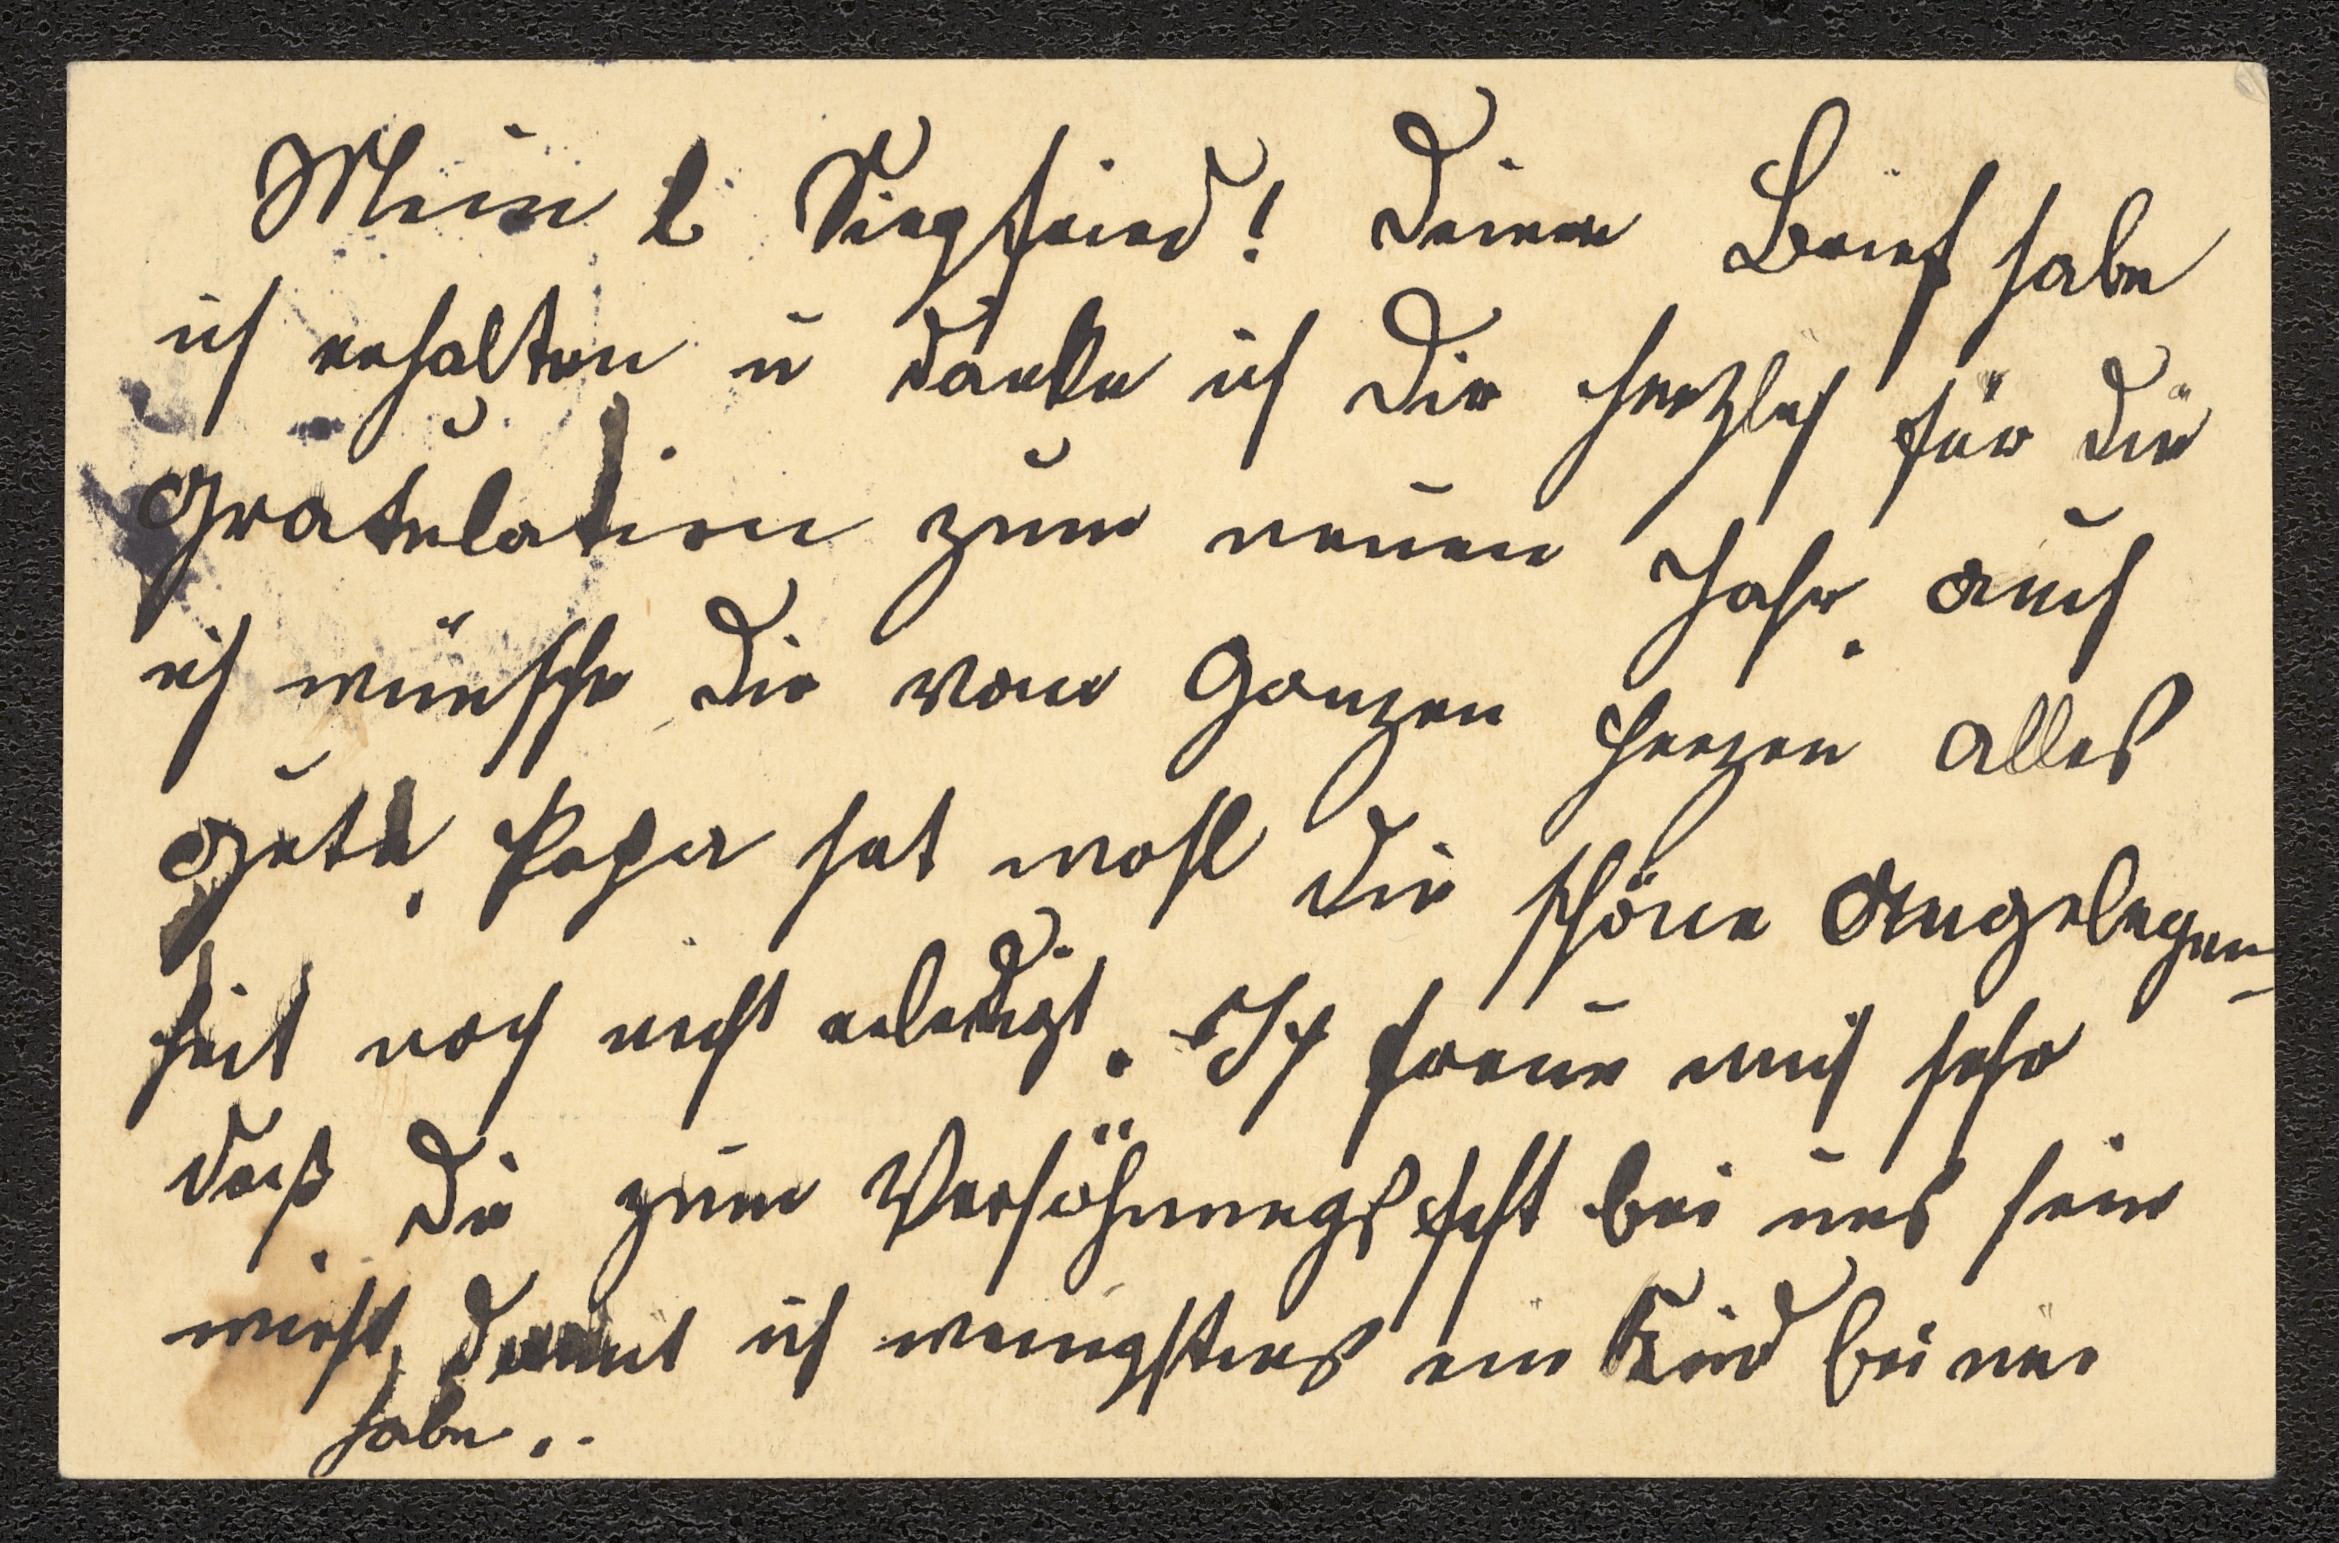 Mein l Siegfried! Deinen Brief habe
ich erhalten u danke ich Dir herzlich für die
Gratulation zum neuen Jahr. auch
ich wünsche Dir vom Ganzen Herzen alles
gute. Papa hat wohl die schöne Angelegen-
heit noch nicht erledigt. Ich freue mich sehr
daß Du zum Versöhnungsfest bei uns sein
wirst, damit ich wenigstens ein Kind bei mir
habe..